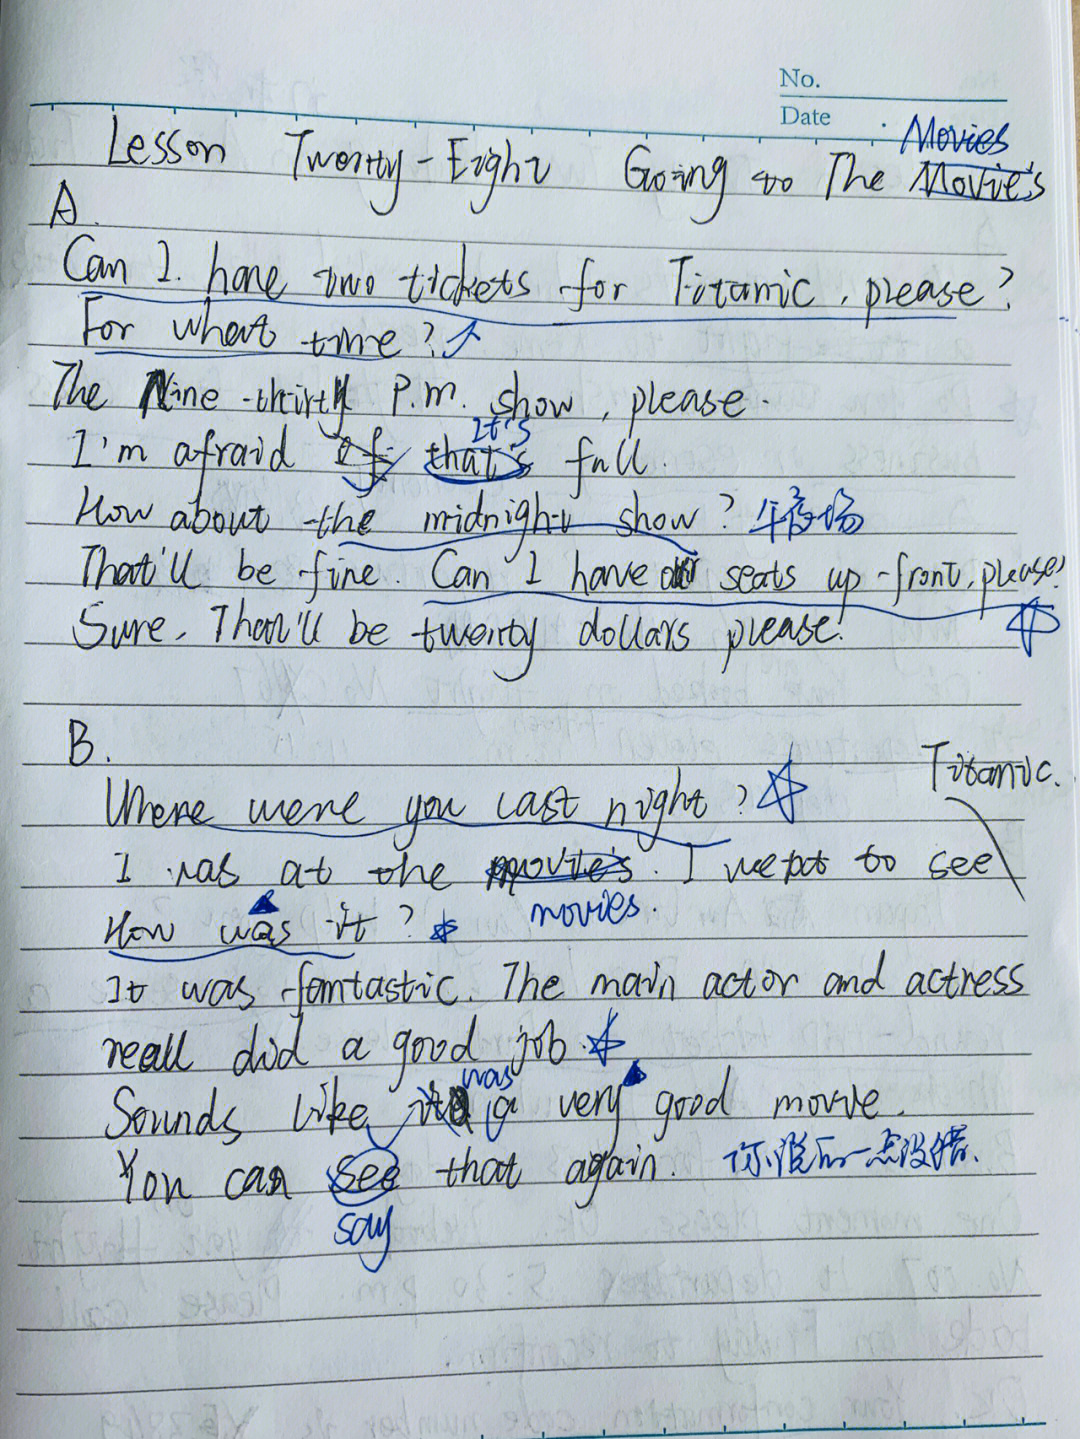 No.
Date
Movies
Lesson Twenty-Eight Going to The Movie's
A.
Can I. have two tickets for Titanic, please?
For what time?
The Nine-thirty P.m. show, please.
It's
I'm afraid If that's full.
How about the midnight show? 午夜场
That'll be fine. Can I have seats up-front, please?
Sure, That'll be twenty dollars please.
B.
Titanic.
Where were you last night?
I was at the movie's. I went to see
movies.
How was it?
It was fantastic. The main actor and actress
reall did a good job.
was
Sounds like a very good movie.
You can see that again. 你说后一点没错.
say